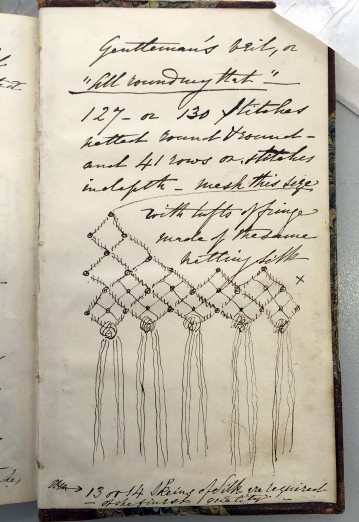 Gentleman's Veil, or
"all rounding hat."
127 - or 130 Stitches
netted round & round -
and 41 rows or stitches
in depth - mesh this size
with tufts of fringe
made of the same
netting silk
x
13 or 14 Skeins of Silk are required
- of the finest quality -